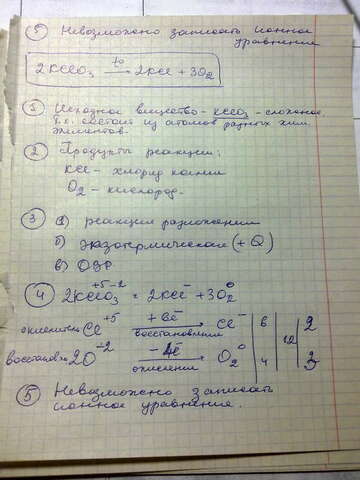 ⑤ Невозможно записать ионное
уравнение
2KClO₃ —t°→ 2KCl + 3O₂
① Исходное вещество - KClO₃ - сложное
т.к. состоит из атомов разных хим.
элементов.
② Продукты реакции:
KCl - хлорид калия
O₂ - кислород.
③ а) реакция разложения
б) экзотермическая (+Q)
в) ОВР
④ 2KCl⁺⁵O₃⁻² = 2KCl⁻ + 3O₂⁰
окислитель Cl⁺⁵ +6ē → восстановление Cl⁻ | 6 | 12 | 2
восстанов. 2O⁻² -4ē → окисление O₂⁰ | 4 | 3
⑤ Невозможно записать
ионное уравнение.